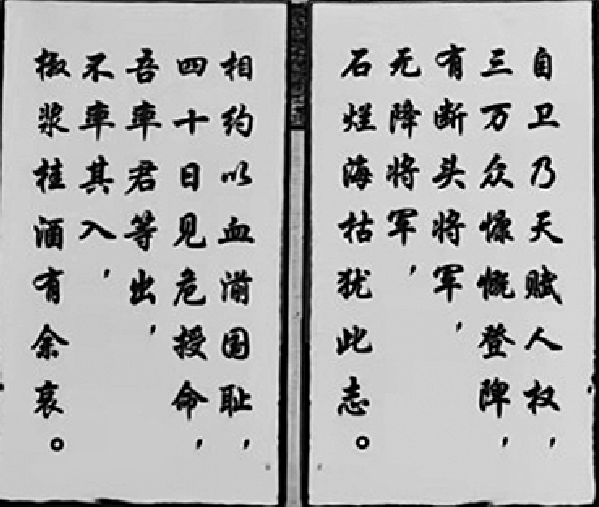 自卫乃天赋人权，
三万众慷慨登陴，
有断头将军，
无降将军，
石烂海枯犹此志。
相约以血湔国耻，
四十日见危授命，
吾車君等出，
不車其入，
椒浆桂酒有余哀。